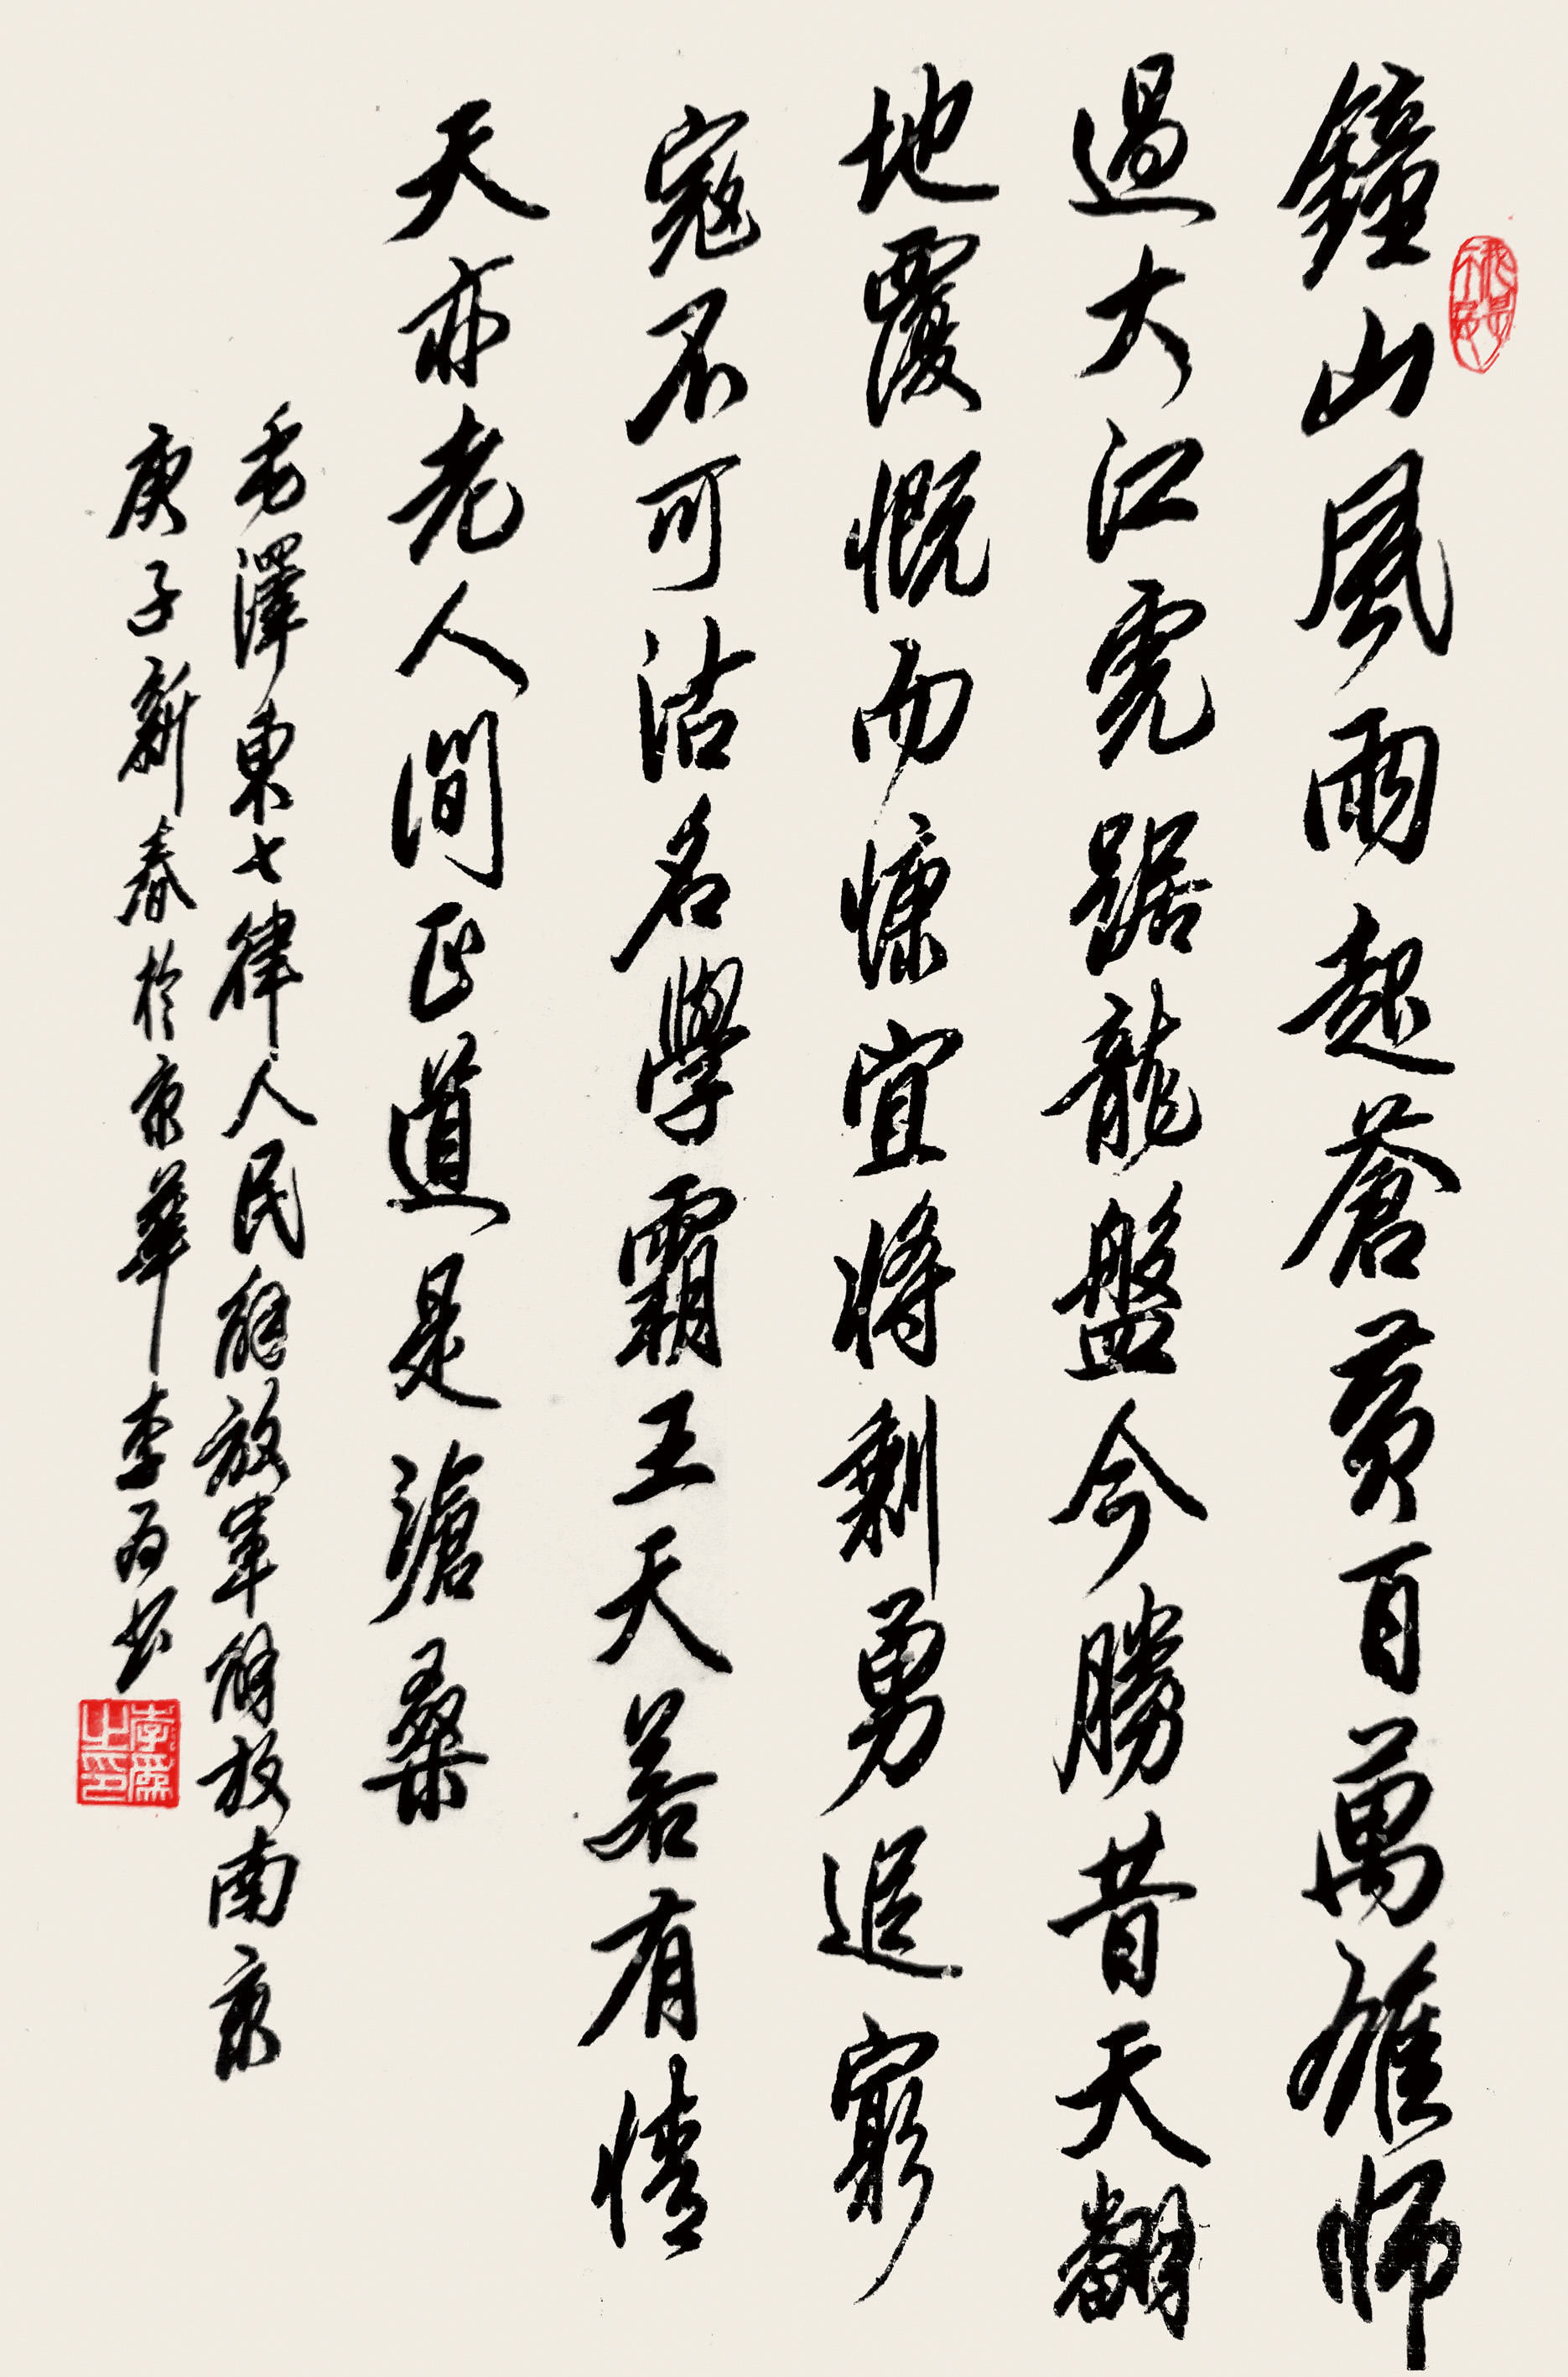 鐘山風雨起蒼黃百萬雄師
過大江虎踞龍盤今勝昔天翻
地覆慨而慷宜將剩勇追窮
寇不可沽名學霸王天若有情
天亦老人間正道是滄桑
毛澤東七律人民解放軍解放南京
庚子新春於京華李為書
李為之印